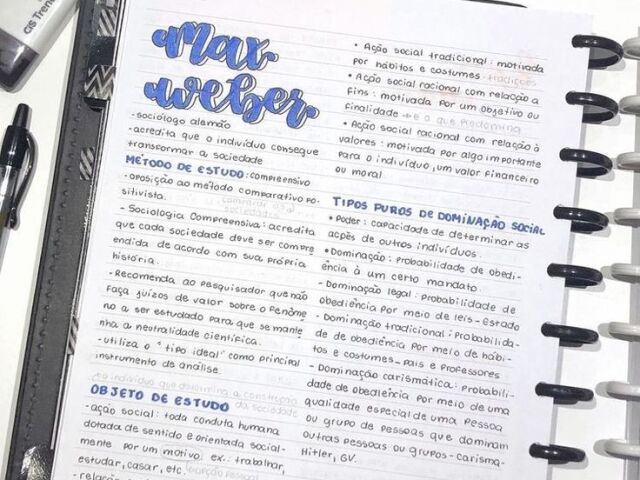 CIS Tren
max
weber
- sociólogo alemão
- acredita que o indivíduo consegue
transformar a sociedade
MÉTODO DE ESTUDO: compreensivo
- oposição ao método comparativo po-
sitivista.
- Sociologia Compreensiva: acredita
que cada sociedade deve ser compre
endida de acordo com sua própria
história.
- Recomenda ao pesquisador que não
faça juízos de valor sobre o fenôme
no a ser estudado para que se mante
nha a neutralidade científica.
- utiliza o "tipo ideal" como principal
instrumento de análise.
OBJETO DE ESTUDO
- ação social: toda conduta humana
dotada de sentido e orientada social-
mente por um motivo. ex.: trabalhar,
estudar, casar, etc.
• Ação social tradicional: motivada
por hábitos e costumes tradições
• Ação social racional com relação a
fins: motivada por um objetivo ou
finalidade → é o que predomina
• Ação social racional com relação à
valores: motivada por algo importante
para o indivíduo, um valor financeiro
ou moral.
TIPOS PUROS DE DOMINAÇÃO SOCIAL
• Poder: capacidade de determinar as
ações de outros indivíduos.
• Dominação: probabilidade de obedi-
ência à um certo mandato.
- Dominação legal: probabilidade de
obediência por meio de leis - Estado
- Dominação tradicional: probabilida-
de de obediência por meio de hábi-
tos e costumes - pais e professores
- Dominação carismática: probabili-
dade de obediência por meio de uma
qualidade especial de uma pessoa
ou grupo de pessoas que dominam
outras pessoas ou grupos - carisma-
Hitler, GV.